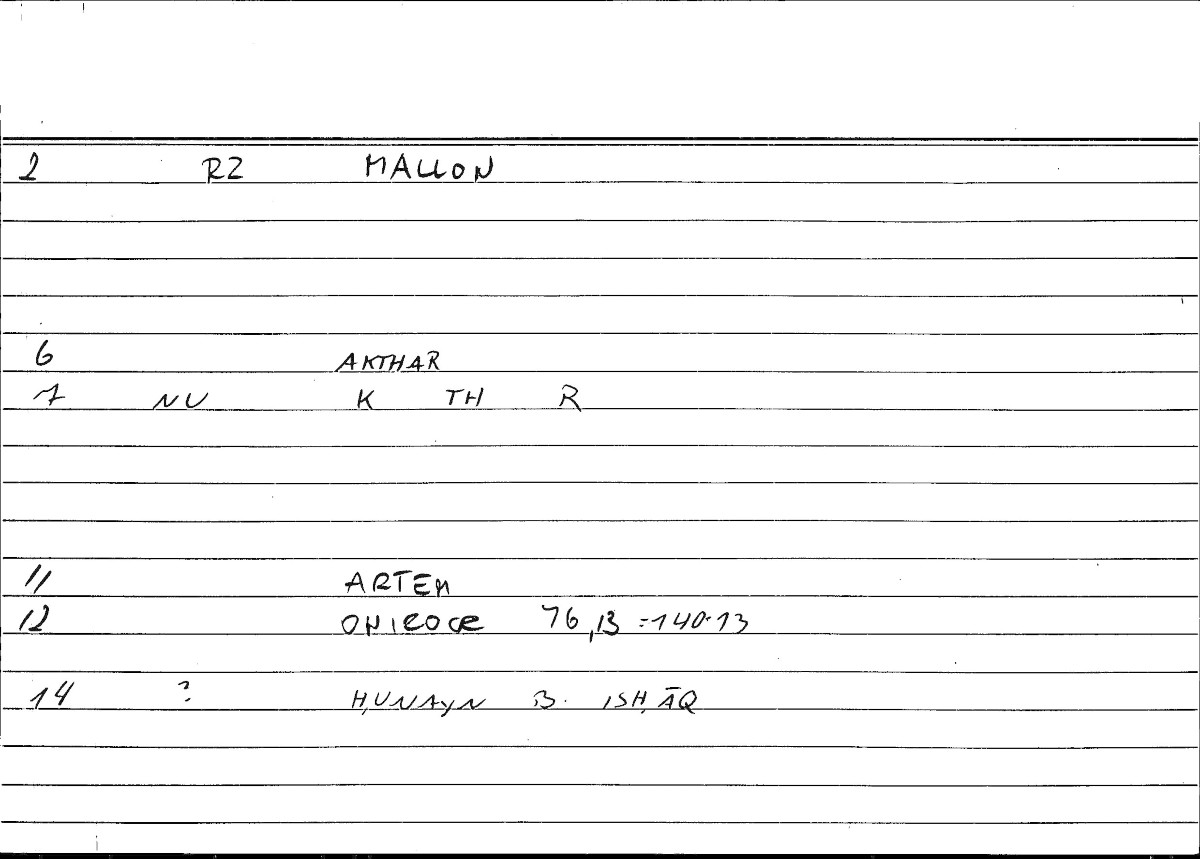 2 RZ MALLON
6 AKTHAR
7 NU K TH R
11 ARTEM
12 ONIROCR 76,13 =140.13
14 ? ḤUNAYN B. ISḤĀQ